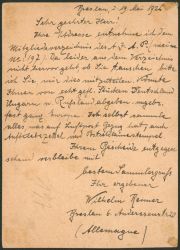 Breslau, d. 19. Mai 1926
Sehr geehrter Herr!
Ihre Adresse entnehme ich dem
Mitgliedsverzeichnis des
No. 197. Da leider aus dem Verzeichnis
nicht hervorgeht ob Sie tauschen bitte
ich Sie, mir dies mitzuteilen. Könnte
Ihnen von echt gefl. Stücken Deutschland
Ungarn u. Rußland abgeben
ganz Europa. Ich selbst sammle
alles was auf Luftpost Bezug hat
Aufklebezettel
Ihrem Bescheide entgegen-
sehend verbleibe mit
bestem Sammlergruß
Ihr ergebener
Wilhelm Renner
Breslau 6 Anderssenstr.
(Allemagne)